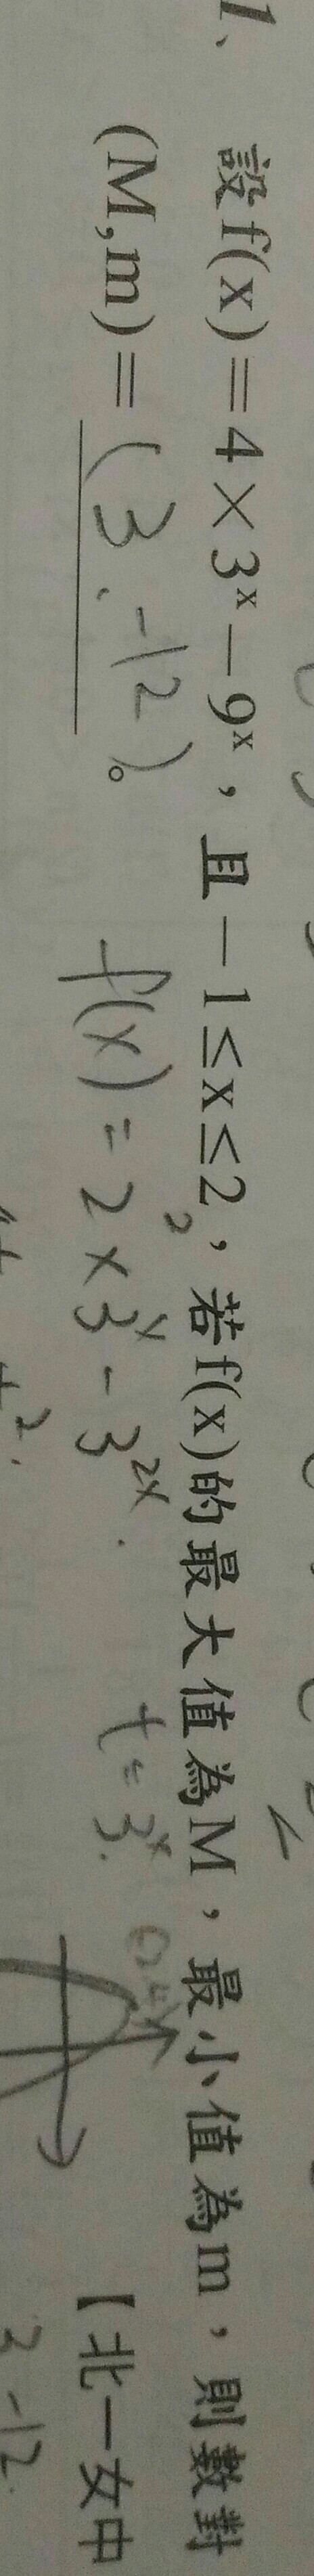 1、 設f(x)=4×3ˣ－9ˣ，且－1≤x≤2，若f(x)的最大值為M，最小值為m，則數對
(M,m)=(3、-12)。 f(x) = 2²×3ˣ - 3²ˣ. t=3ˣ. 【北一女中